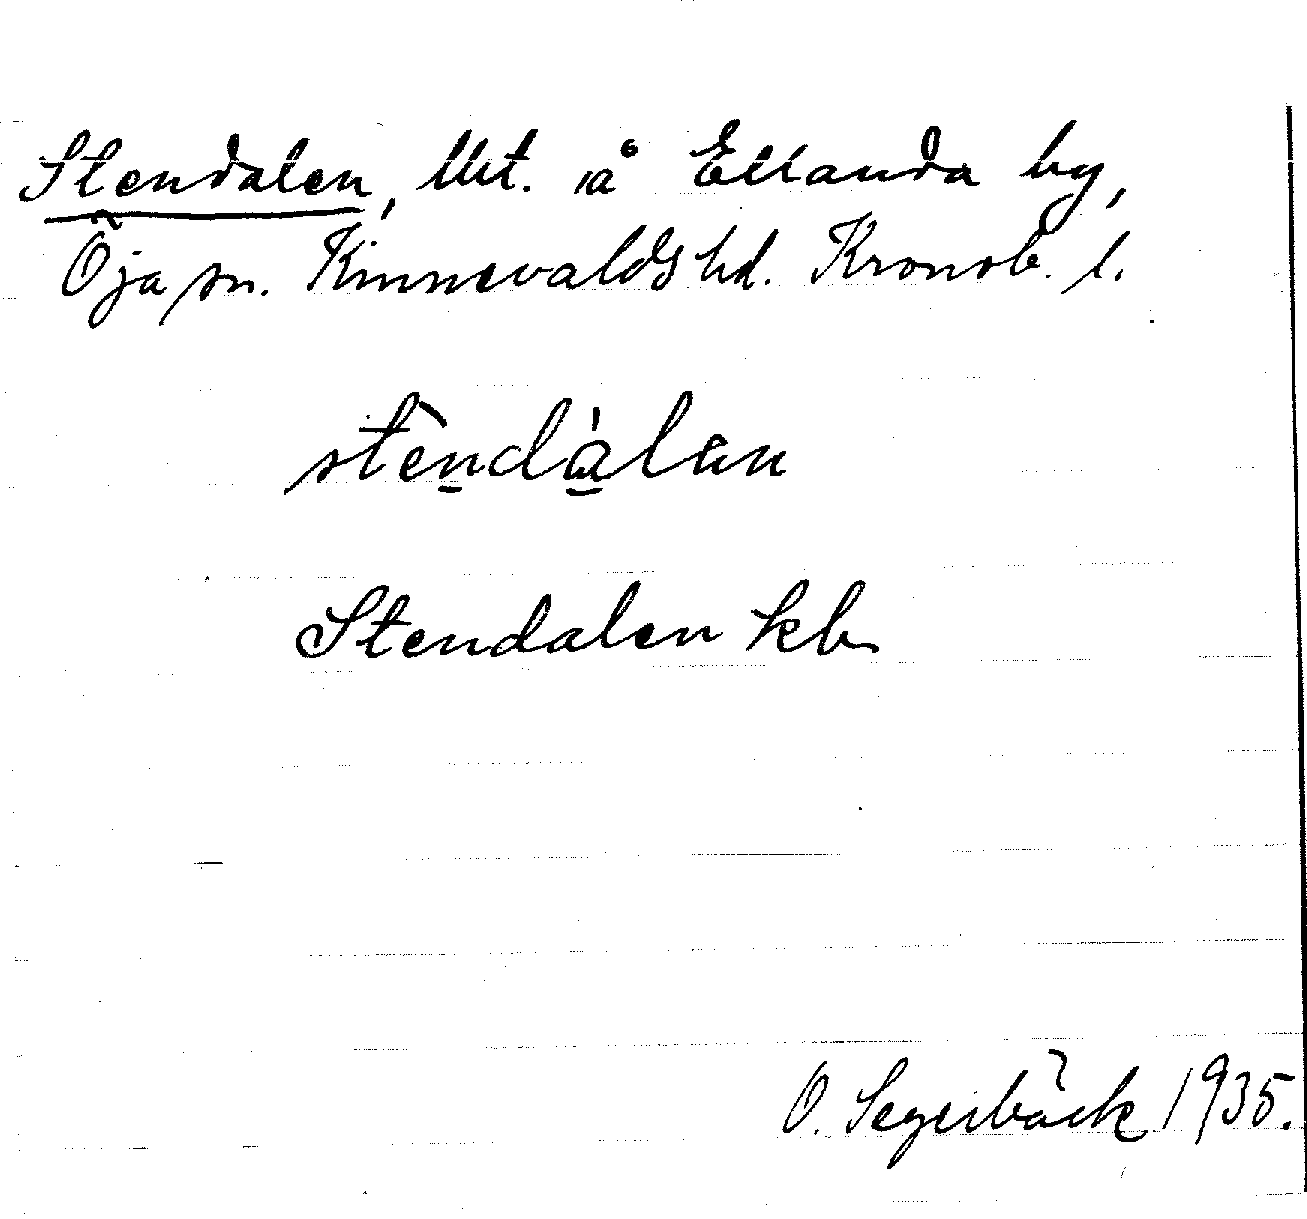 Stendalen, lht. å Ellanda by,
Öja sn. Kinnevalds hd. Kronob. l.
stèndálan
Stendalen kb
O. Segerbäck 1935.